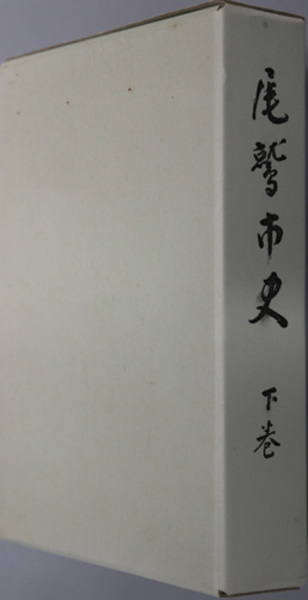 尾鷲市史 下巻